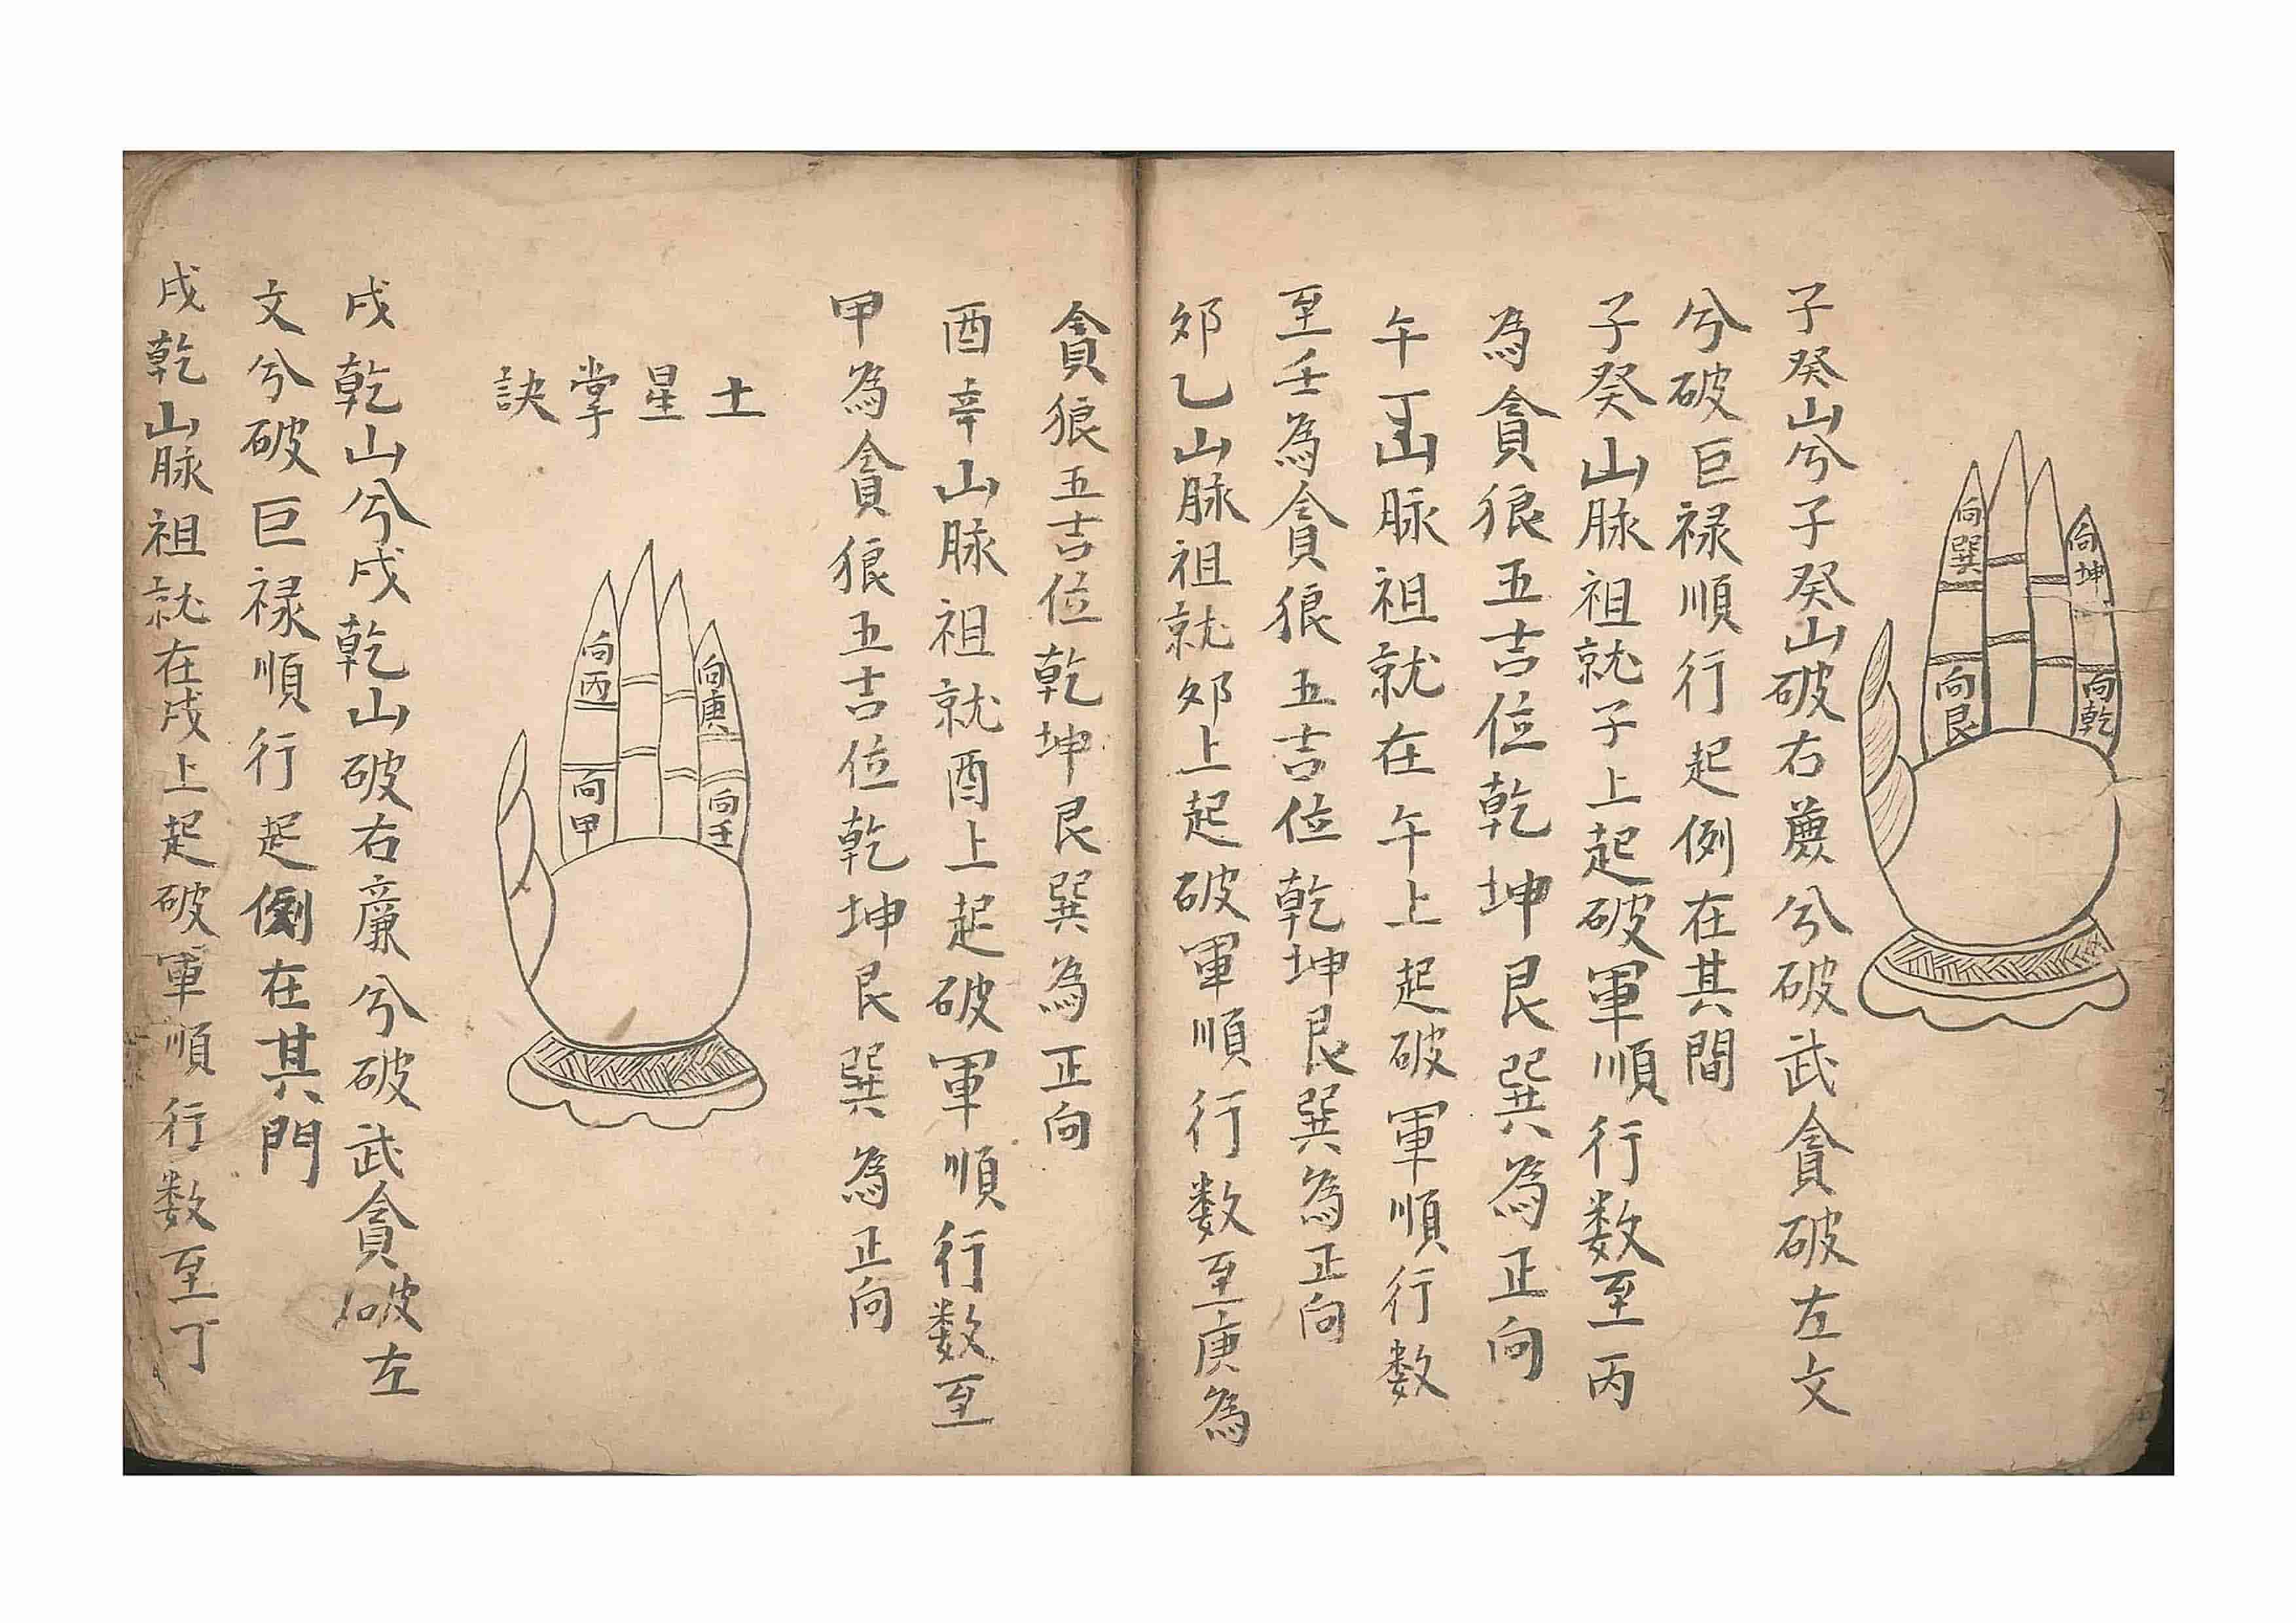 向巽
向坤
向艮
向乾
子癸山兮子癸山破右廉兮破武貪破左文
兮破巨禄順行起例在其間
子癸山脉祖就子上起破軍順行数至丙
為貪狼五吉位乾坤艮巽為正向
午丁山脉祖就在午上起破軍順行数
至壬為貪狼五吉位乾坤艮巽為正向
夘乙山脉祖就夘上起破軍順行数至庚為
貪狼五吉位乾坤艮巽為正向
酉辛山脉祖就酉上起破軍順行数至
甲為貪狼五吉位乾坤艮巽為正向
土星掌訣
向丙
向庚
向甲
向壬
戌乾山兮戌乾山破右廉兮破武貪破左
文兮破巨禄順行起例在其門
戌乾山脉祖就在戌上起破軍順行数至丁